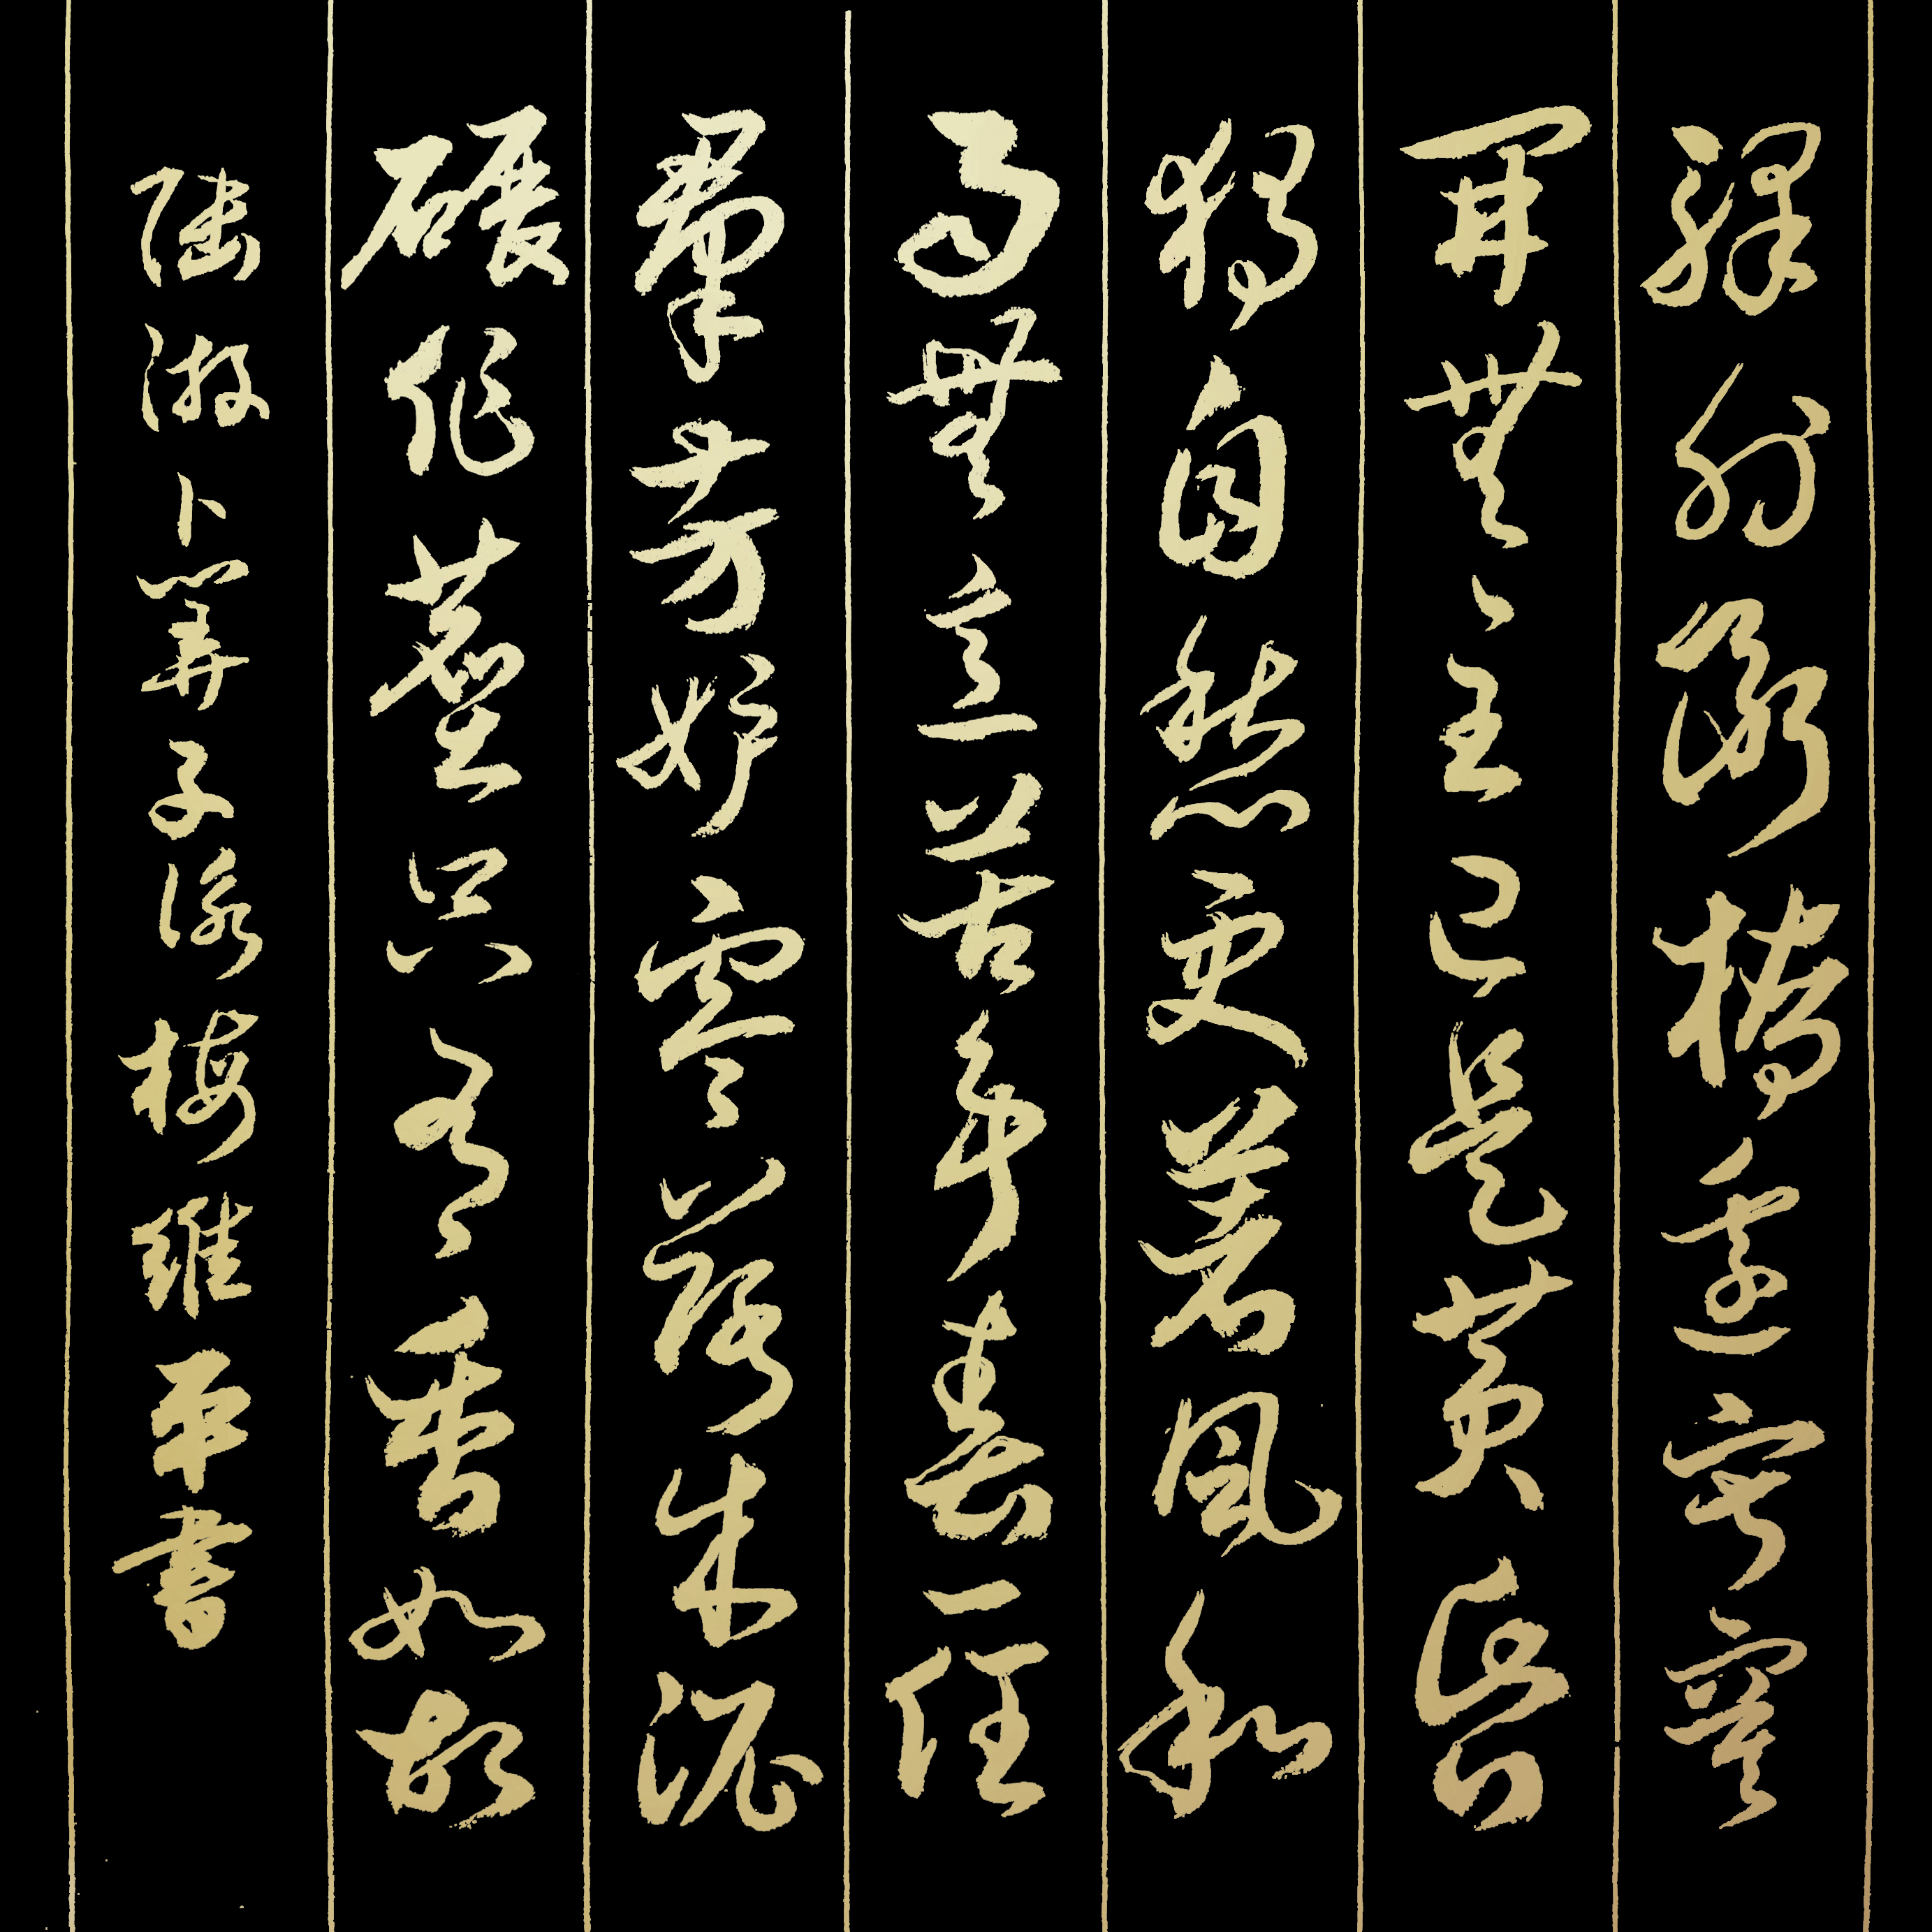 驛外斷橋邊寂寞
開無主已是黃昏
獨自愁更著風和
雨無意苦爭春一任
群芳妒零落成泥
碾作塵只有香如故
陸游卜算子詠梅維平書